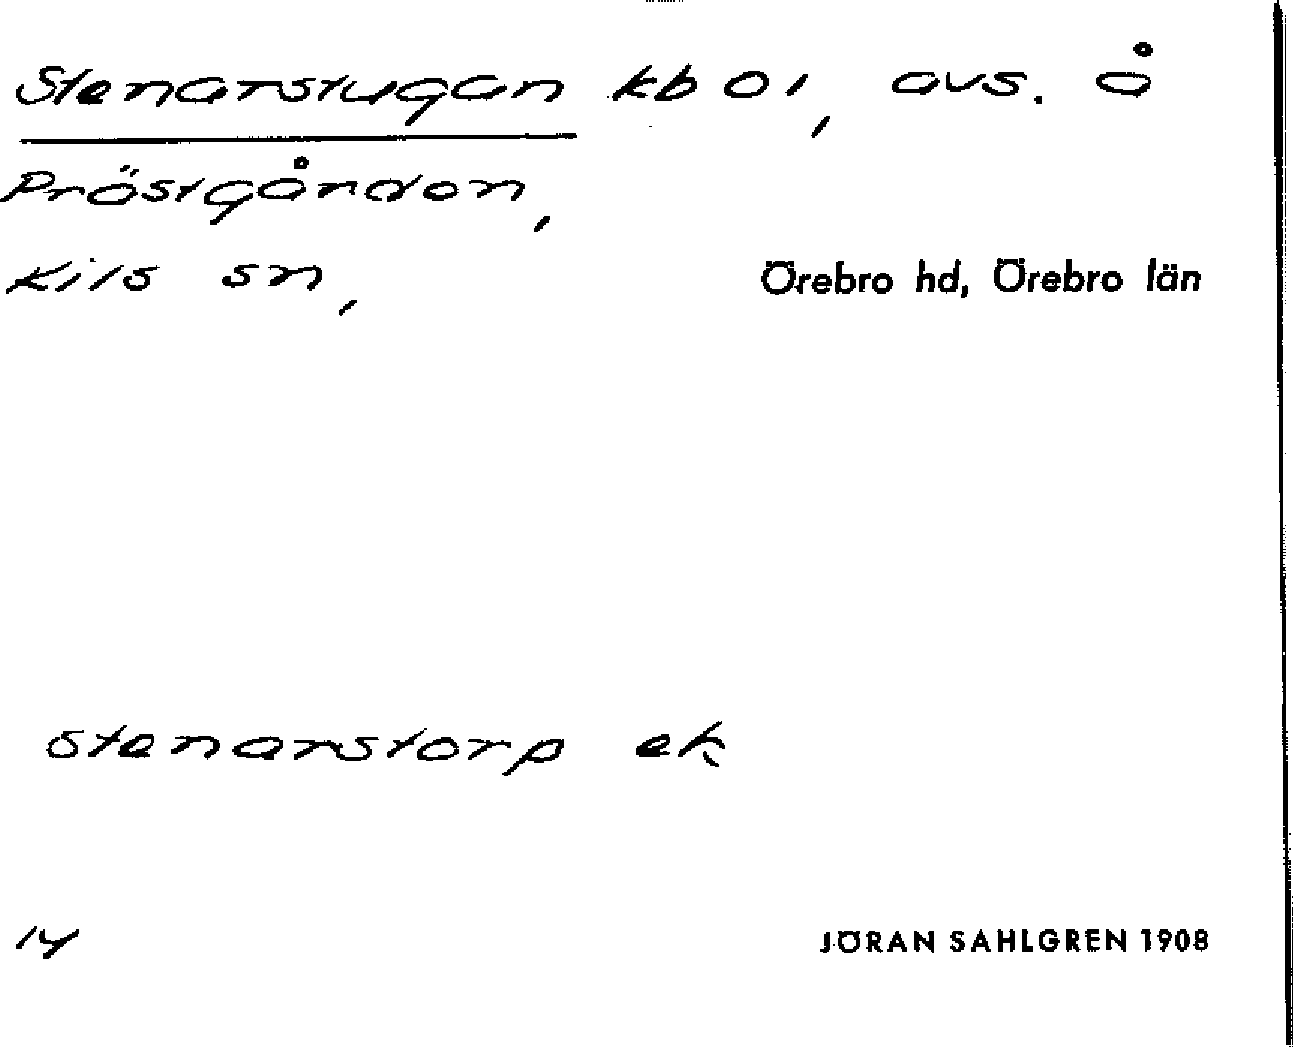 Stenarstugan kb 01, avs. å
Prästgården,
Kils sn, Örebro hd, Örebro län
stenarstorp ek
14
JÖRAN SAHLGREN 1908